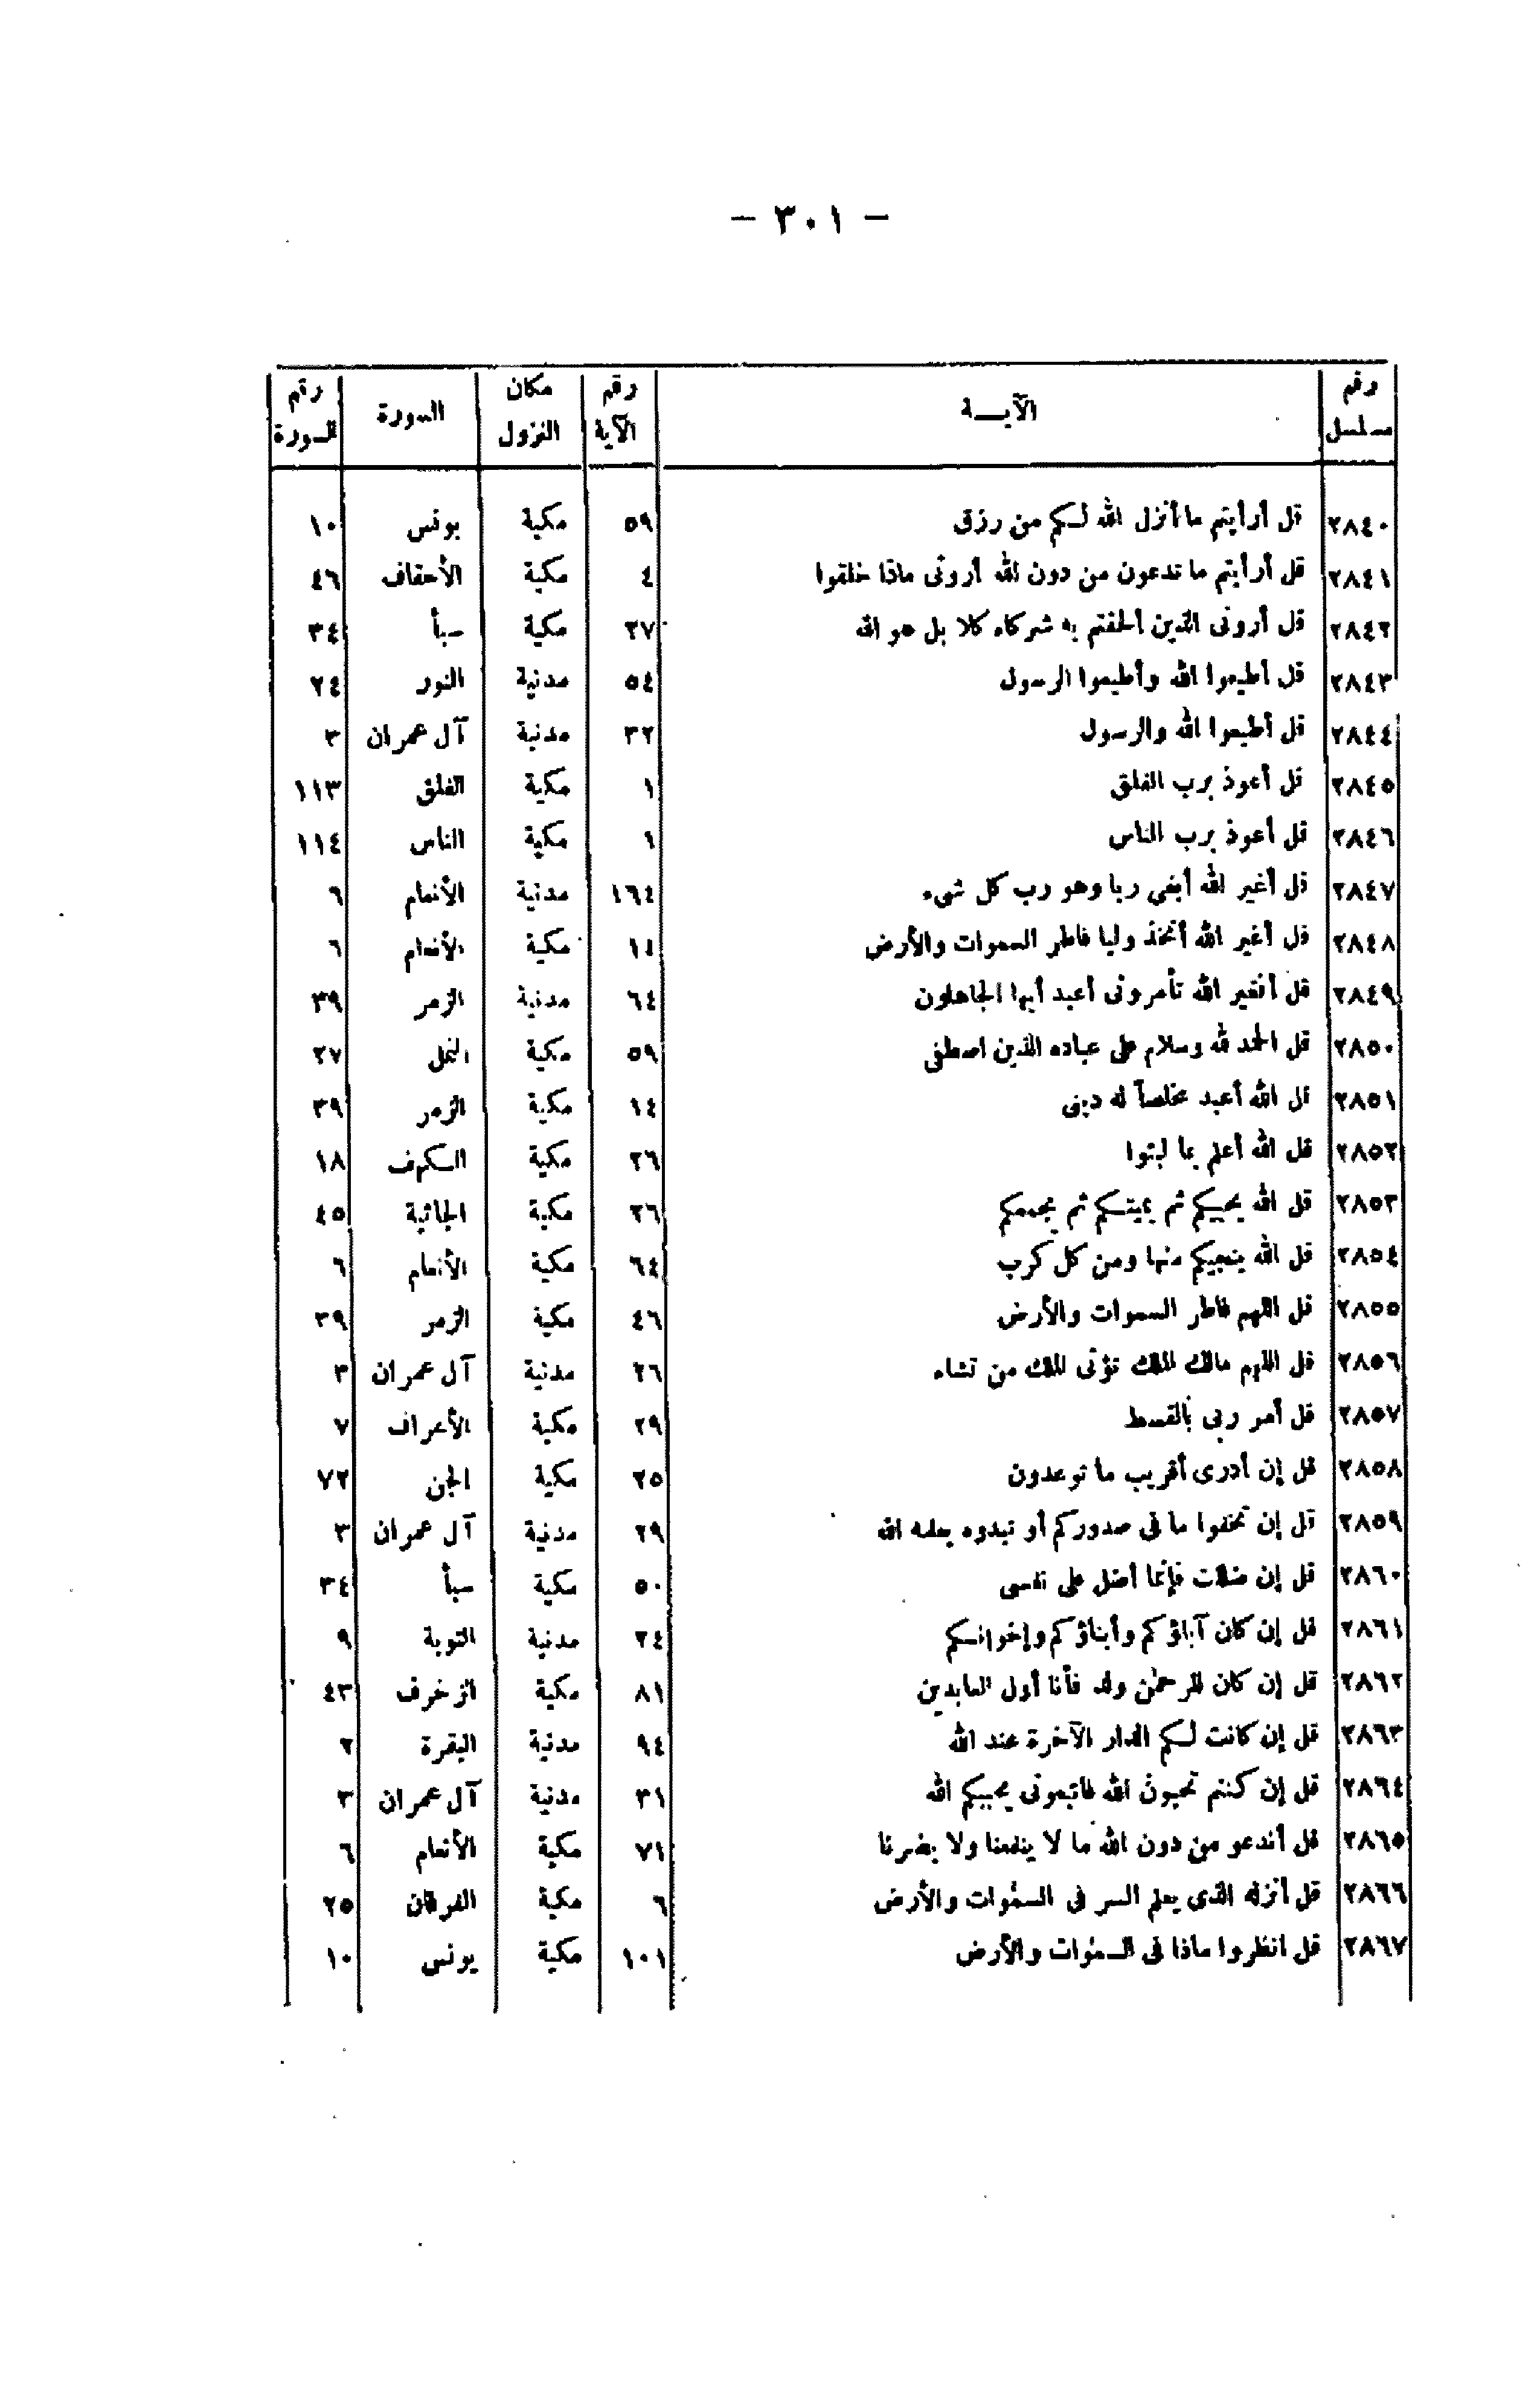 — ٣٠١ —
رقم مسلسل الآيــة رقم الآية مكان النزول السورة رقم السورة
٢٨٤٠ قل أرأيتم ما أنزل الله لكم من رزق ٥٩ مكية يونس ١٠
٢٨٤١ قل أرأيتم ما تدعون من دون الله أرونى ماذا خلقوا ٤ مكية الأحقاف ٤٦
٢٨٤٢ قل أرونى الذين ألحقتم به شركاء كلا بل هو الله ٢٧ مكية سبأ ٣٤
٢٨٤٣ قل أطيعوا الله وأطيعوا الرسول ٥٤ مدنية النور ٢٤
٢٨٤٤ قل أطيعوا الله والرسول ٣٢ مدنية آل عمران ٣
٢٨٤٥ قل أعوذ برب الفلق ١ مكية الفلق ١١٣
٢٨٤٦ قل أعوذ برب الناس ١ مكية الناس ١١٤
٢٨٤٧ قل أغير الله أبغى ربا وهو رب كل شىء ١٦٤ مدنية الأنعام ٦
٢٨٤٨ قل أغير الله أتخذ وليا فاطر السموات والأرض ١٤ مكية الأنعام ٦
٢٨٤٩ قل أفغير الله تأمرونى أعبد أيها الجاهلون ٦٤ مدنية الزمر ٣٩
٢٨٥٠ قل الحمد لله وسلام على عباده الذين اصطفى ٥٩ مكية النمل ٢٧
٢٨٥١ قل الله أعبد مخلصاً له دينى ١٤ مكية الزمر ٣٩
٢٨٥٢ قل الله أعلم بما لبثوا ٢٦ مكية الكهف ١٨
٢٨٥٣ قل الله يحييكم ثم يميتكم ثم يجمعكم ٢٦ مكية الجاثية ٤٥
٢٨٥٤ قل الله ينجيكم منها ومن كل كرب ٦٤ مكية الأنعام ٦
٢٨٥٥ قل اللهم فاطر السموات والأرض ٤٦ مكية الزمر ٣٩
٢٨٥٦ قل اللهم مالك الملك تؤتى الملك من تشاء ٢٦ مدنية آل عمران ٣
٢٨٥٧ قل أمر ربى بالقسط ٢٩ مكية الأعراف ٧
٢٨٥٨ قل إن أدرى أقريب ما توعدون ٢٥ مكية الجن ٧٢
٢٨٥٩ قل إن تخفوا ما فى صدوركم أو تبدوه يعلمه الله ٢٩ مدنية آل عمران ٣
٢٨٦٠ قل إن ضللت فإنما أضل على نفسى ٥٠ مكية سبأ ٣٤
٢٨٦١ قل إن كان آباؤكم وأبناؤكم وإخوانكم ٢٤ مدنية التوبة ٩
٢٨٦٢ قل إن كان للرحمن ولد فأنا أول العابدين ٨١ مكية الزخرف ٤٣
٢٨٦٣ قل إن كانت لكم الدار الآخرة عند الله ٩٤ مدنية البقرة ٢
٢٨٦٤ قل إن كنتم تحبون الله فاتبعونى يحببكم الله ٣١ مدنية آل عمران ٣
٢٨٦٥ قل أندعو من دون الله ما لا ينفعنا ولا يضرنا ٧١ مكية الأنعام ٦
٢٨٦٦ قل أنزله الذى يعلم السر فى السموات والأرض ٦ مكية الفرقان ٢٥
٢٨٦٧ قل انظروا ماذا فى السموات والأرض ١٠١ مكية يونس ١٠